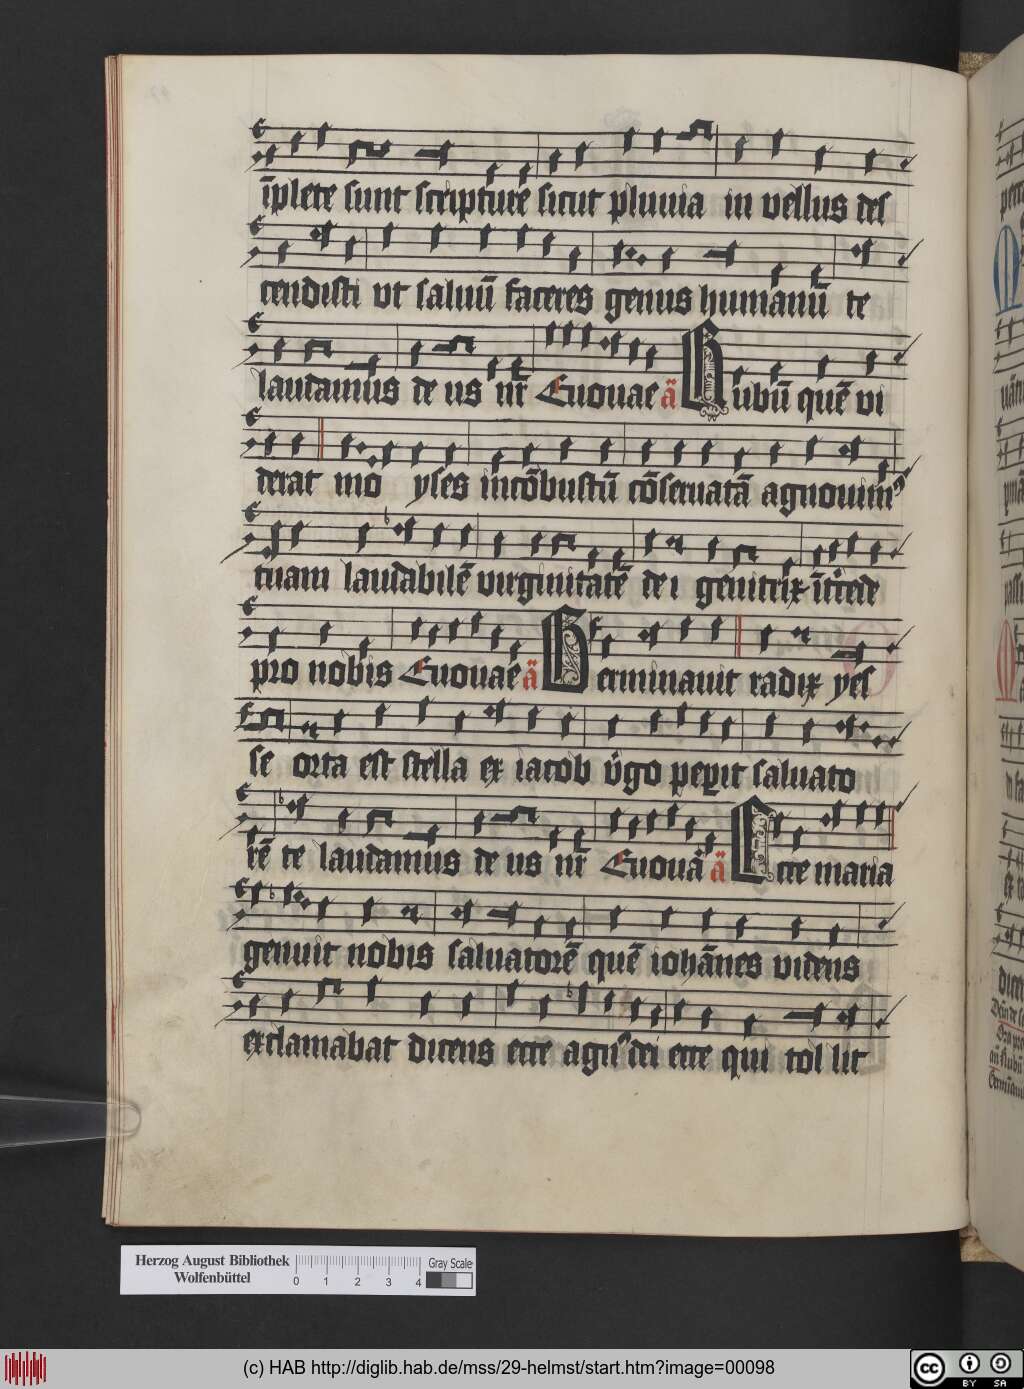 īplete sunt scripture sicut pluuia in vellus des
cendisti vt saluū faceres genus humanū te
laudamus de us nr̄ Euouae ā Rubū quē vi
derat mo yses incōbustū cōseruatā agnouim⁹
tuam laudabilē virginitatē de i genitrix īt͛cede
pro nobis Euouae ā Germinauit radix yes
se orta est stella ex iacob v͛go peꝑit saluato
rē te laudamus de us nr̄ Euouā ā Ecce maria
genuit nobis saluatorē quē iohānes videns
exclamabat dicens ecce agn⁹ dei ecce qui tol lit
Herzog August Bibliothek
Wolfenbüttel
0 1 2 3 4
Gray Scale
(c) HAB http://diglib.hab.de/mss/29-helmst/start.htm?image=00098
cc BY SA